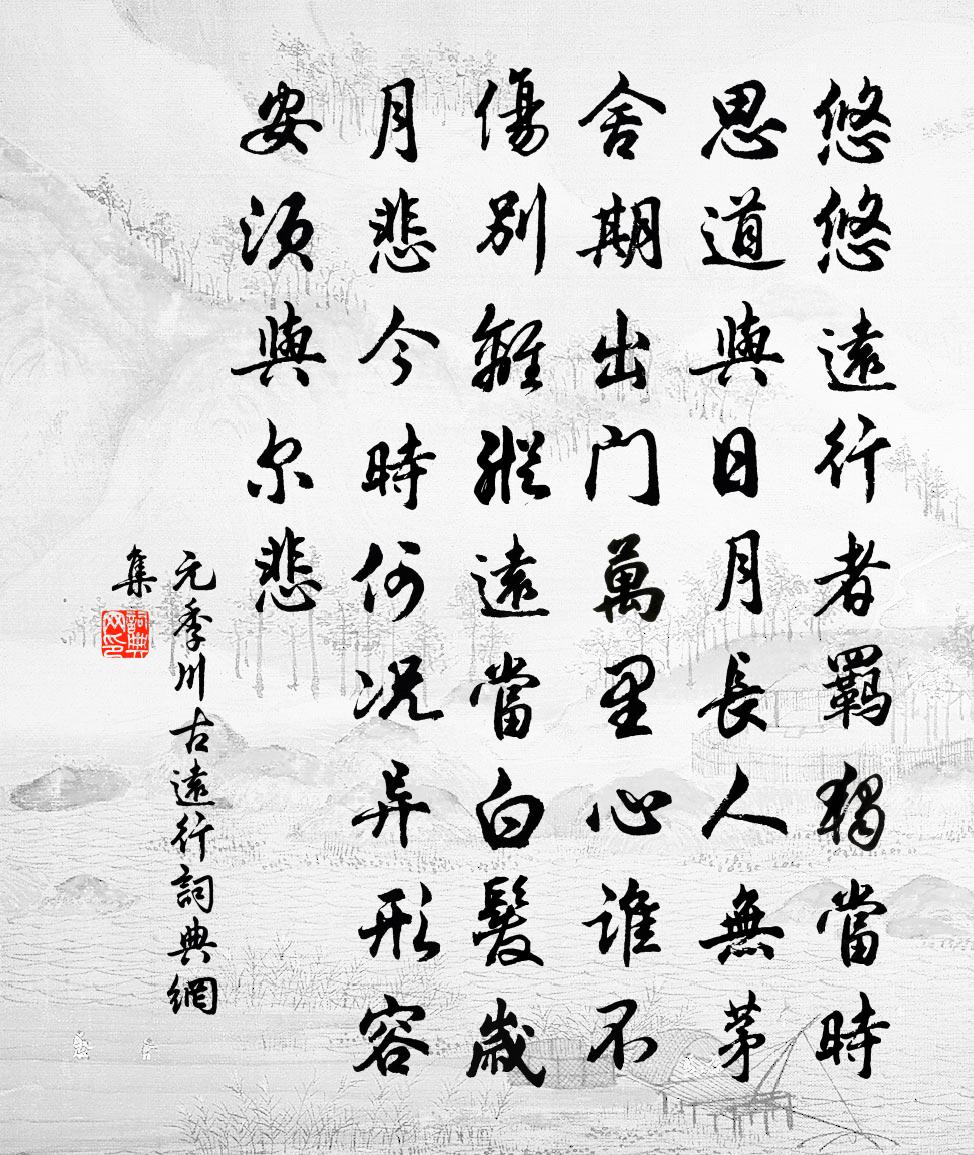 悠悠遠行者羈獨當時
思道與日月長人無茅
舍期出门萬里心誰不
傷別離縱遠當白髮歲
月悲今時何况异形容
安須與尔悲
元季川古遠行詞典網
集
詞典网印